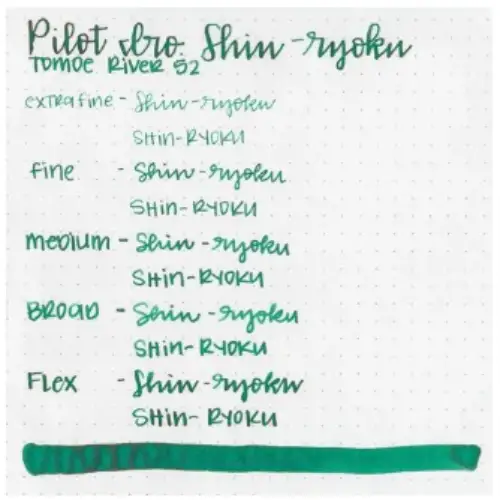 Pilot Iro. Shin-ryoku
Tomoe River 52
extra fine - Shin-ryoku
SHIN-RYOKU
fine - Shin-ryoku
SHIN-RYOKU
medium - Shin-ryoku
SHIN-RYOKU
BROAD - Shin-ryoku
SHIN-RYOKU
Flex - Shin-ryoku
SHIN-RYOKU